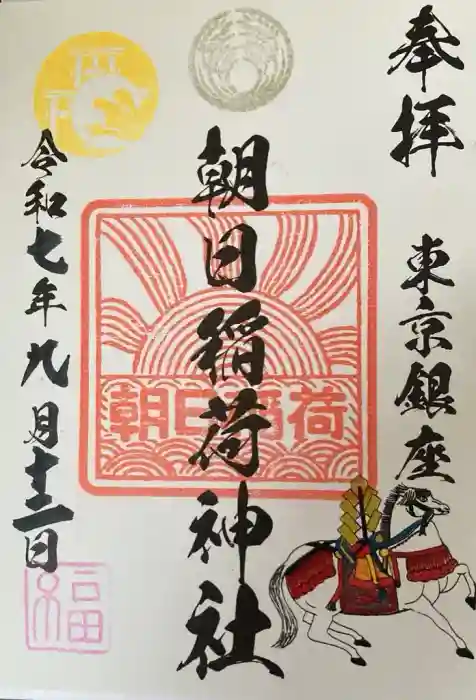 奉拝
東京銀座
朝日稲荷神社
朝日稲荷
令和七年九月十二日
福